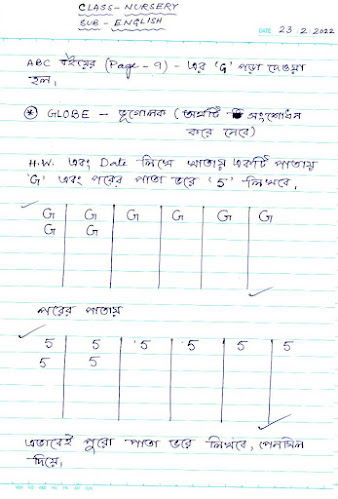 CLASS - NURSERY
SUB - ENGLISH
DATE 23.2.2022
ABC বইয়ের (Page - 9) - এর 'G' পড়া দেওয়া
হল,
* GLOBE - ভূগোলক (অর্থটি সংশোধন
করে নেবে)
H.W. এবং Date লিখে খাতায় একটি পাতায়
'G' এবং পরের পাতা ভরে '5' লিখবে,
G G G G G G
G G
পরের পাতায়
5 5 5 5 5 5
5 5
এভাবেই পুরো পাতা ভরে লিখবে, পেনসিল
দিয়ে,